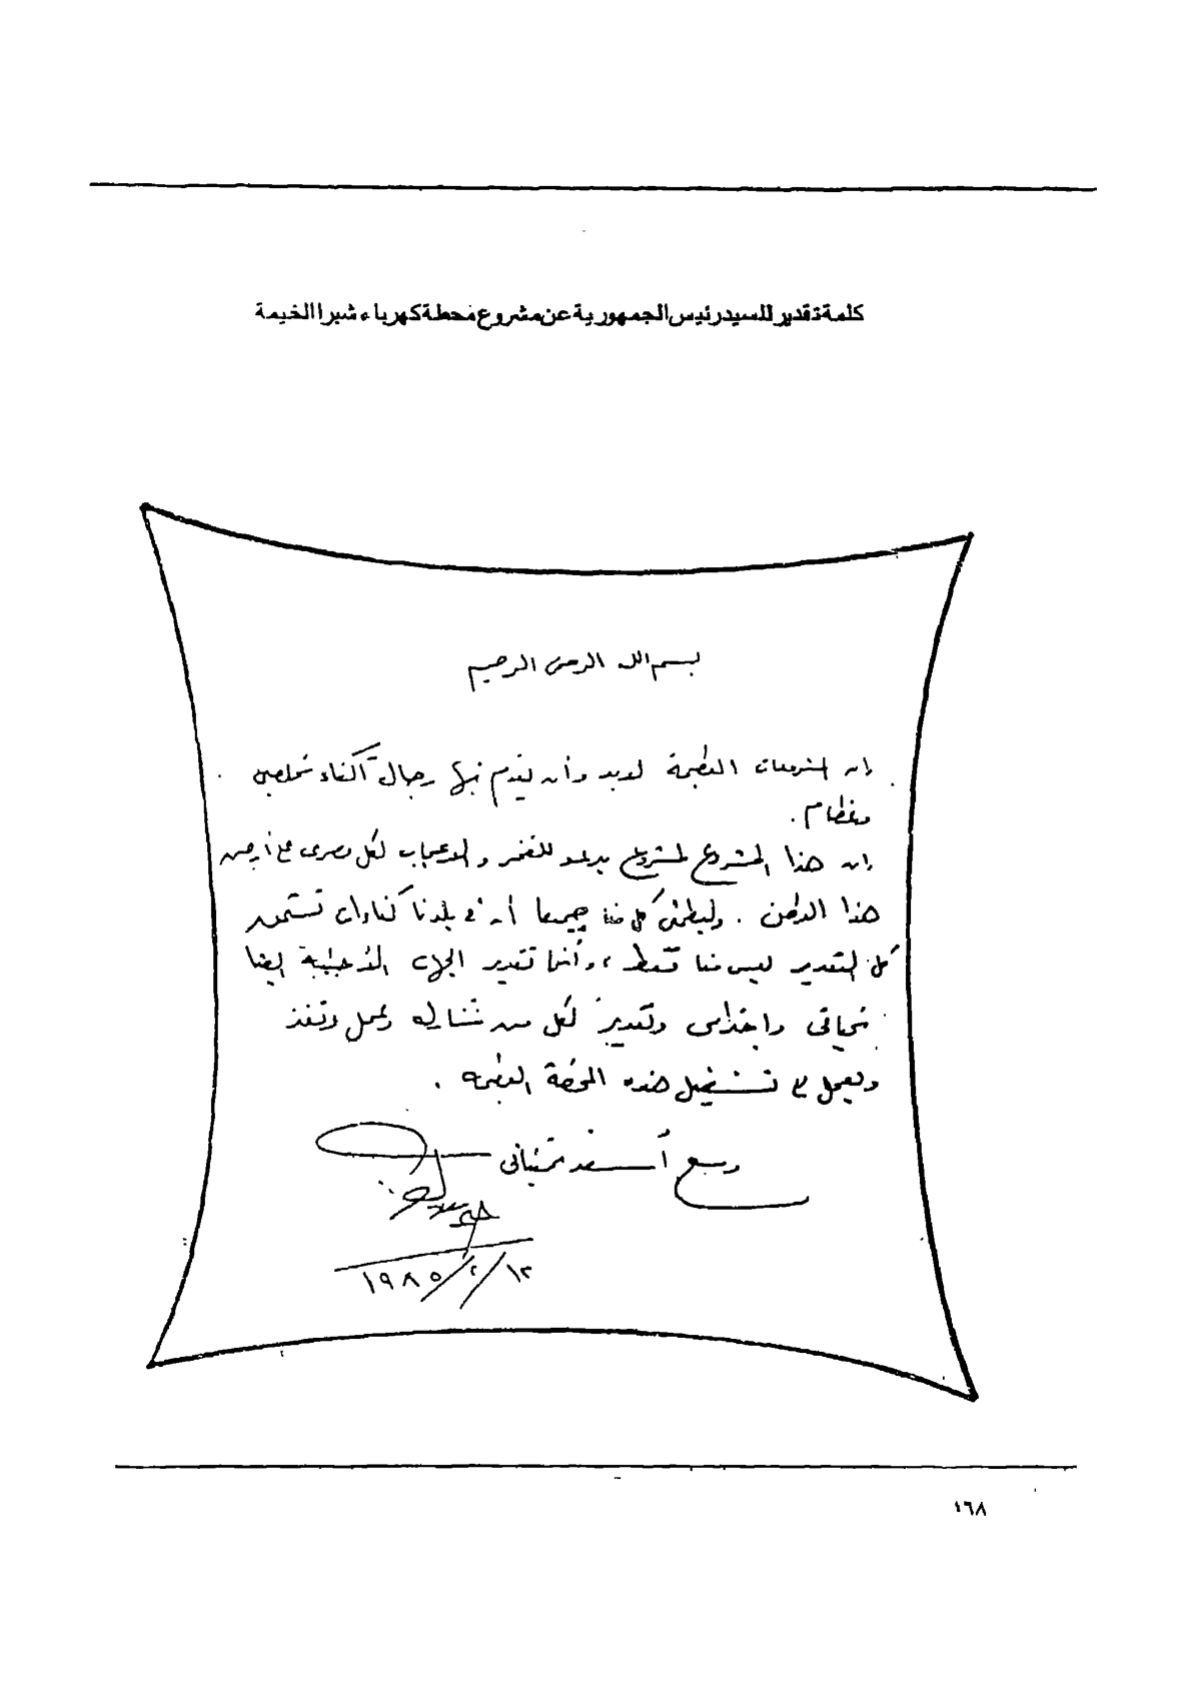 كلمة تقدير للسيد رئيس الجمهورية عن مشروع محطة كهرباء شبرا الخيمة
بسم الله الرحمن الرحيم
إن المشروعات العظيمة لابد وأن يقدم فيها رجال أكفاء مخلصين
وعظام .
إن هذا المشروع لمشروع يدعو للفخر والاعجاب لكل مصرى على أرض
هذا الوطن . وليطمئن كل منا جميعا أن فى بلدنا كفاءات تستحق
كل التقدير ليس منا فقط ، وأنما تقدير الجهات الأجنبية ايضا
تحياتى واخلاص وتقدير لكل من شارك وعمل ونفذ
ويعمل على تشغيل هذه المحطة العظيمة .
ومع أسعد تمنياتى
١٩٨٥/٢/١٢
١٦٨